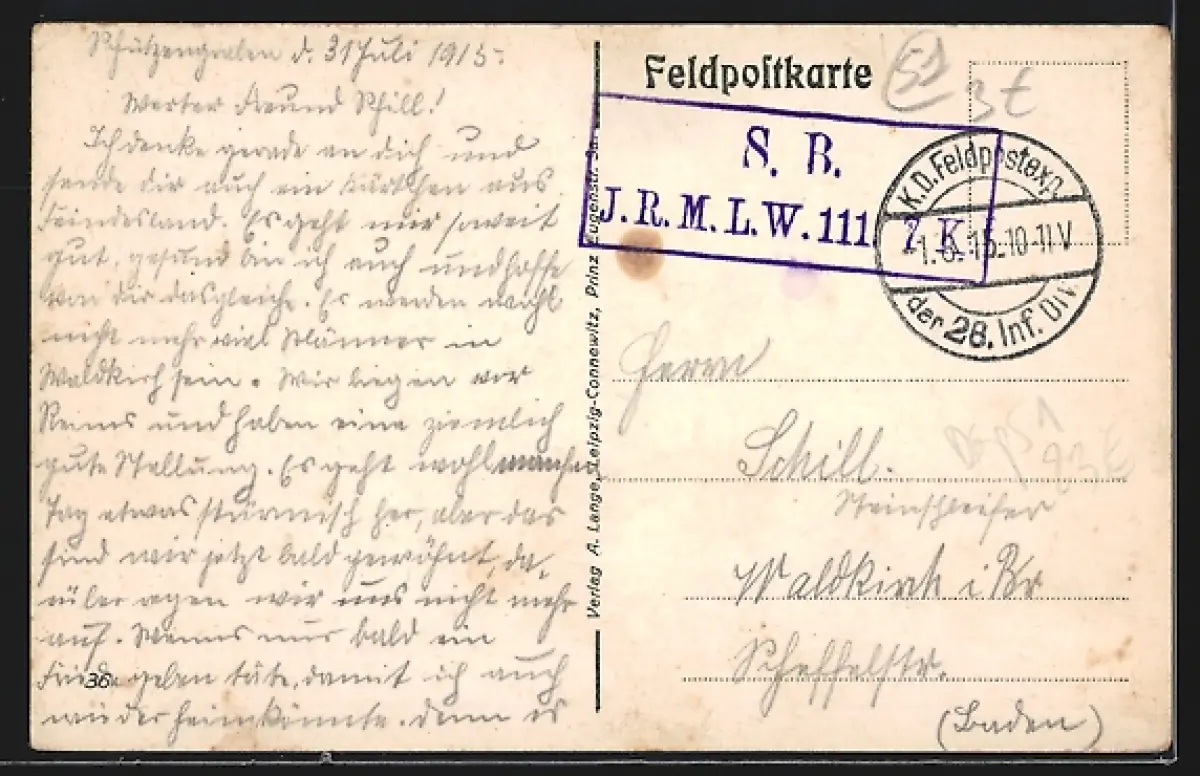 Schützengraben d. 31 Juli 1915
Werter Freund Schill!
Ich denke gerade an dich und
sende dir auch ein Kärtchen aus
Feindesland. Es geht mir soweit
gut, gesund bin ich auch und hoffe
von dir dasgleiche. Es werden wohl
nicht mehr viel Männer in
Waldkirch sein. Wir liegen vor
Reims und haben eine ziemlich
gute Stellung. Es geht wohl manchen
Tag etwas stürmisch her, aber das
sind wir jetzt bald gewöhnt, da
rüber regen wir uns nicht mehr
auf. Wenns nur bald ein
Friede geben täte, damit ich auch
wieder heim könnte. Denn es
36
Verlag A. Lange, Leipzig-Connewitz, Prinz Eugenstr.
Feldpostkarte
51
3 €
S. B.
J. R. M. L. W. 111. 7. K.
K. D. Feldpostexp.
1.8.15.10-11V
der 28. Inf. Div.
Herrn
Schill.
Steinschleifer
Waldkirch i Br
Scheffelstr.
(Baden)